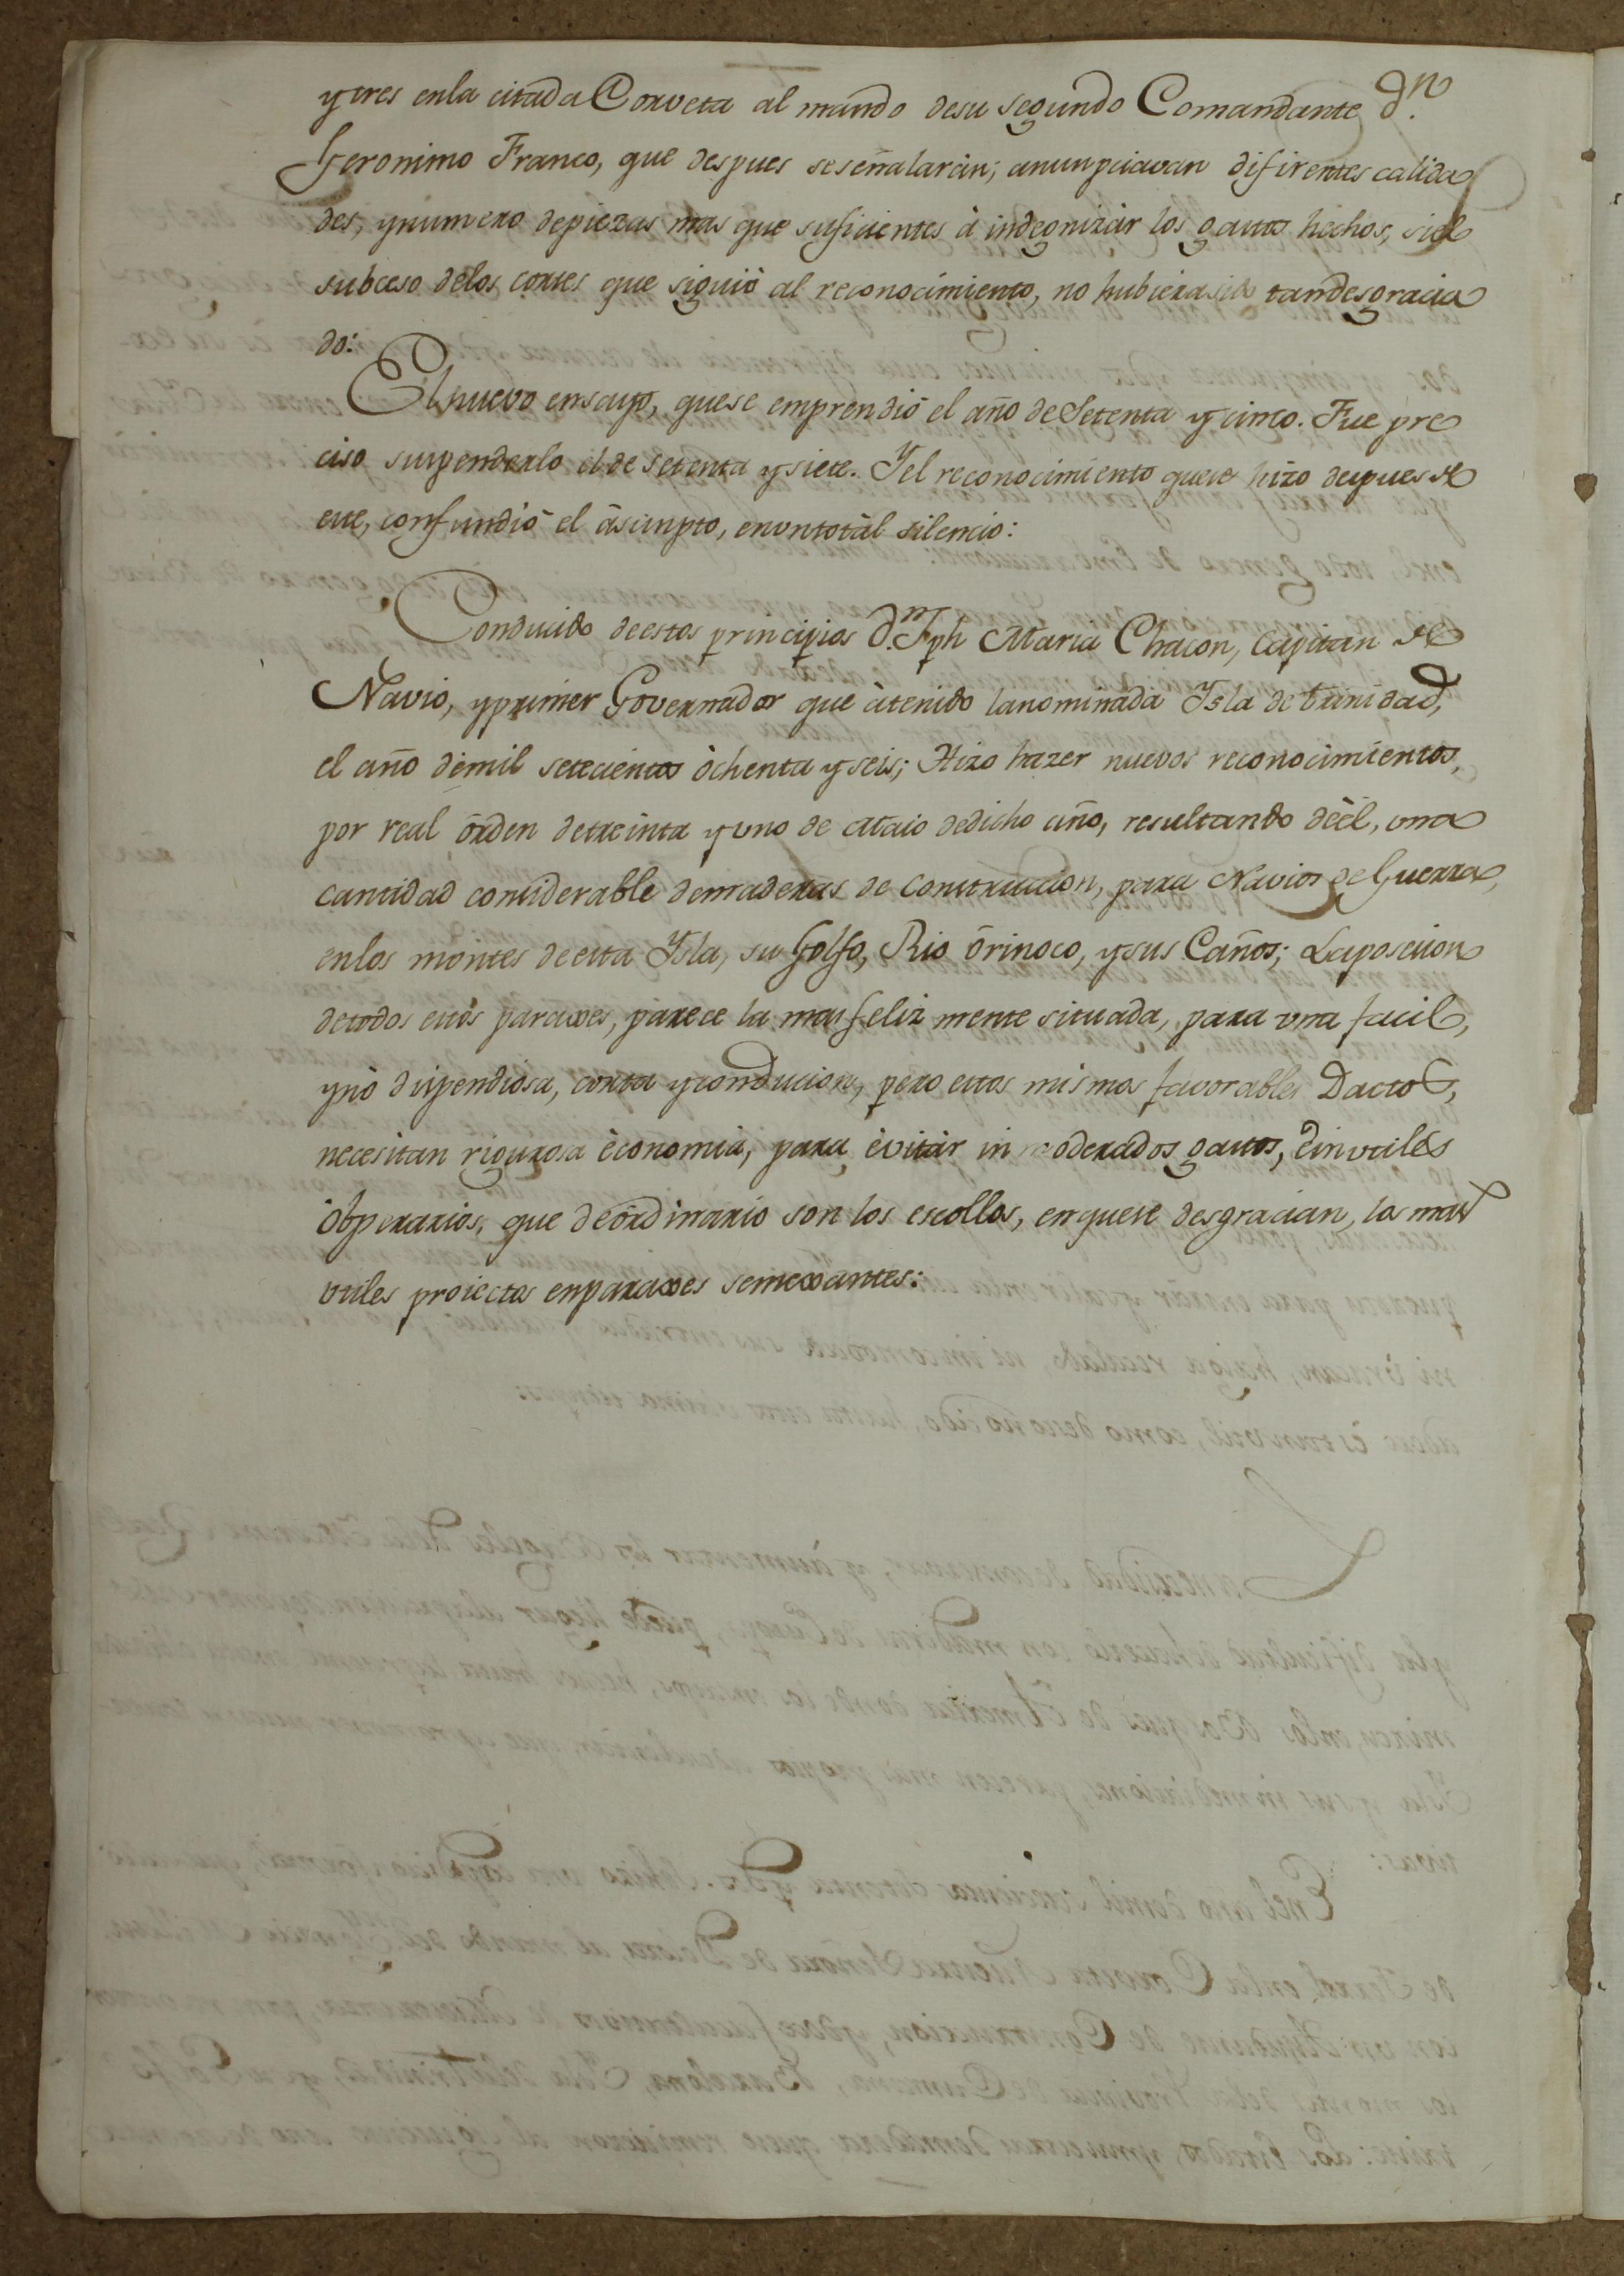 y tres enla citada Corveta al mando desu segundo Comandante Dn.
Geronimo Franco, que despues se señalarán; anunpciavan difirentes calida
des, ynumero depiezas mas que suficientes à indegnizàr los gastos hechos, siel
subceso delos cortes que siguiò al reconocimiento, no hubiera sido tandesgracia
do:
El nuevo ensayo, quese emprendiò el año de Setenta y cinco. Fue pre
ciso suspenderlo el de setenta y siete. Y el reconocimiento quese hizo despues de
este, confundiò el àsumpto, enuntotàl silencio:
Conducido deestos principios Dn. Jph Maria Chacon, Capitan de
Navio, yprimer Governador que àtenido lanominada Ysla de trinidad,
el año demil setecientos òchenta y seis; Hizo hazer nuevos reconocimientos,
por real òrden detreinta y uno de Maio dedicho año, resultando deèl, una
cantidad considerable demaderas de construccion, para Navios de Guerra,
enlos montes deesta Ysla, su Golfo, Rio òrinoco, ysus Caños; Laposecion
detodos estòs paraxes, parece la mas feliz mente situada, para una facil,
ynò dispendiosa, corta yconducion, pero estos mismos favorables Dactos,
necesitan rigurosa èconomia, para èvitàr inmoderados gastos, èinutiles
òbperarios, que deòrdinario son los escollos, enquese desgracian, los mas
utiles proiectos enparaxes semexantes: